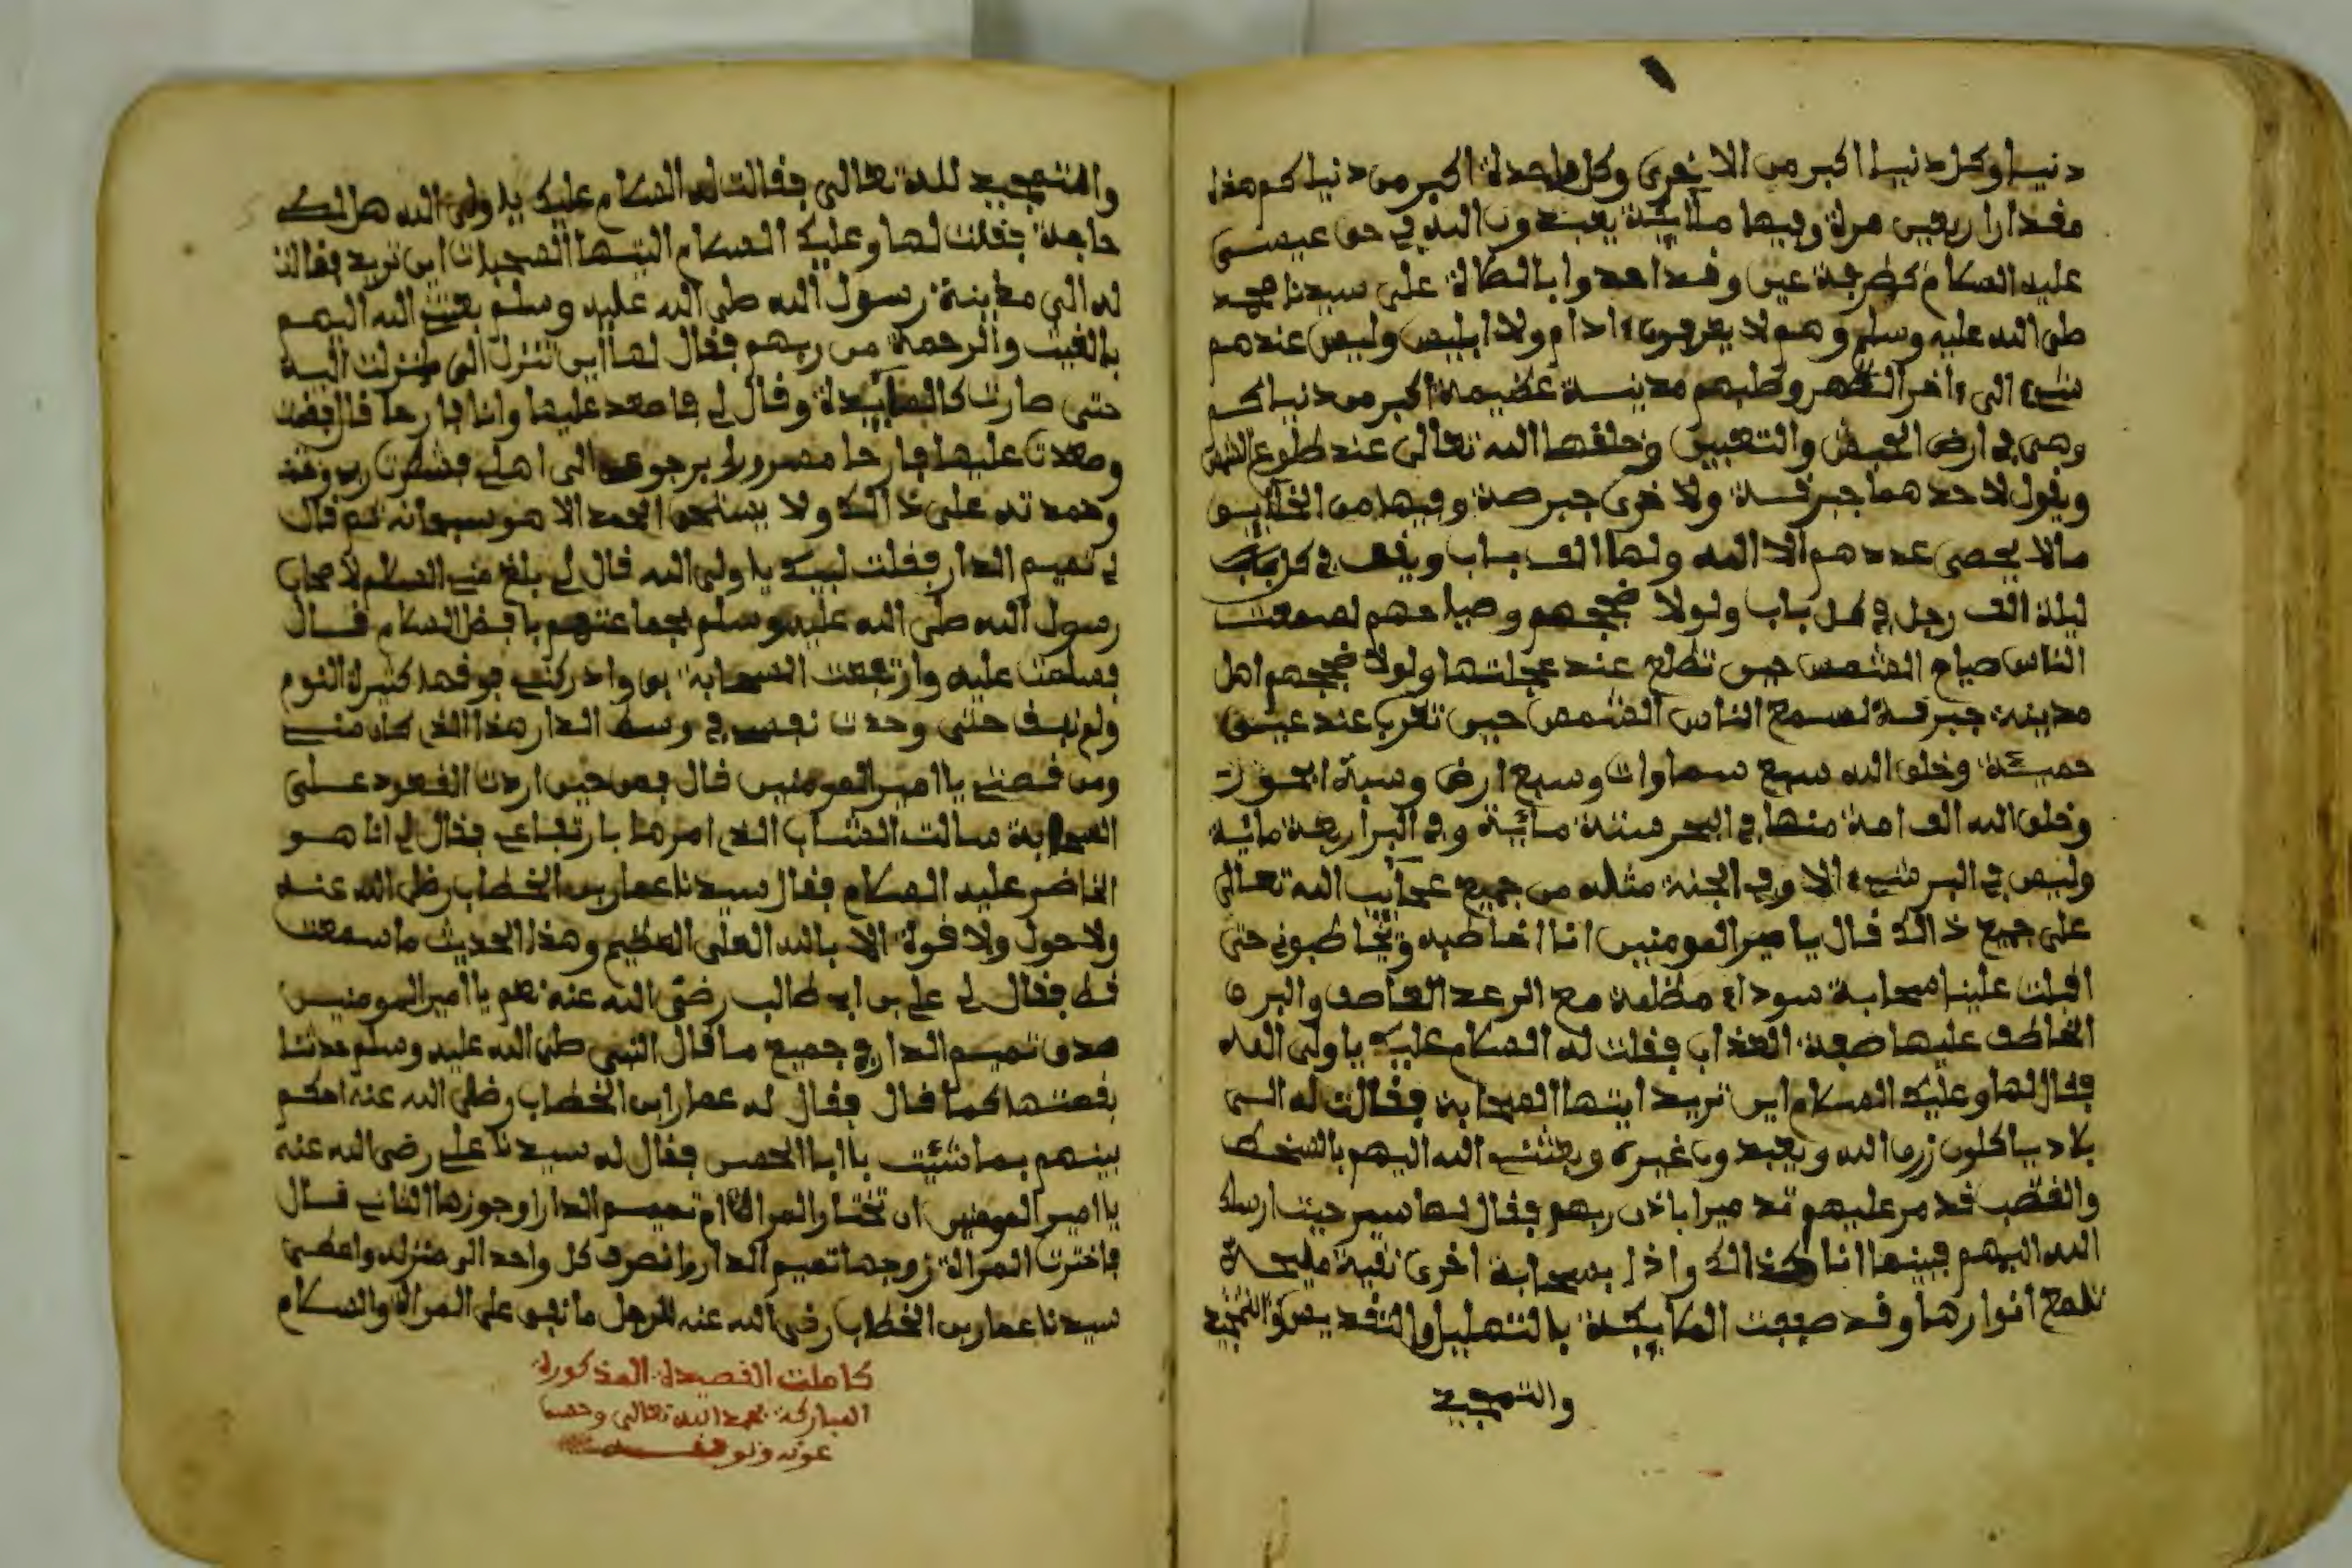 دنيا وكل دنيا اكبر من الاخرى وكل واحدة اكبر من دنياكم هذا
مقدار اربعين مرة وفيها ملائكة يعبدون الله في حق عيسى
عليه السلام كطرفة عين وقد اهدوا بالصلاة على سيدنا محمد
صلى الله عليه وسلم وهم لا يعرفون ءادام ولا ابليس وليس عندهم
شيء الى ءاخر الدهر وخلفهم مدينة عظيمة اكبر من دنياكم
وهي في ارض وخلقها الله تعالى عند طلوع الشمس
ويقول لاحدهما جبرقة ولاخرى جبرصة وفيها من الخلايق
مالا يحصى عددهم الا الله ولها الف باب ويقف في كل باب
ليلة الف رجل في كل باب ولولا ضجيجهم وصياحهم لسمعت
الناس صياح الشمس حين تطلع عند عجلتها ولولا ضجيجهم اهل
مدينة جبرقة لسمع الناس الشمس حين تغرب عند عين
حميئة وخلق الله سبع سماوات وسبع ارض وسبة ابحور
وخلق الله الف امة منها في البحر ستة مائية وفي البر اربعة مائية
وليس في البر شيء الا وفي الجنة مثله من جميع عجائب الله تعالى
على جميع ذالك قال يا امير المومنين انا اخاطبه ويخاطبوني حتى
اقبلت علينا سحابة سوداء مظلمة مع الرعد القاصف والبرق
الخاطف عليها صفة العذاب فقلت له السلام عليك يا ولي الله
فقال لها وعليك السلام اين تريد ايتها السحابة فقالت له الى
بلاد ياكلون زرق الله ويعبدون غيره وبعثني الله اليهم بالسخط
والغضب قد مر عليهم تدميرا باذن ربهم فقال لها سير حيث ارسلك
الله اليهم فبينما انا كذالك واذا بسحابة اخرى نقية مليحة
تلمع انوارها وقد صفقت الملايكة بالتهليل والتقديس والتمجيد
والتمجيد
والتمجيد لله تعالى فقالت له السلام عليك يا ولي الله هل لك
حاجة فقلت لها وعليك السلام ايتها السحابات اين تريد فقالت
له الى مدينة رسول الله صلى الله عليه وسلم بعثني الله اليهم
بالغيث والرحمة من ربهم فقال لها اين تنزل الي فنزلت اليه
حتى صارت كالمائيدة وقال لي فاصعد عليها وانا فارحا قال فقمت
وصعدت عليها فارحا مسرورا برجوعي الى اهلي فشكرت ربي
وحمدته على ذالك ولا يستحق الحمد الا هو سبحانه ثم قال
لي تميم الدار فقلت لبيك يا ولي الله قال لي بلغ مني السلام لاصحاب
رسول الله صلى الله عليه وسلم بجماعتهم بافضل السلام قال
فسلمت عليه وارتفعت السحابة بي وادركني فوقها كثيرة النوم
ولم نفف حتى وجدت نفسي في وسط الدار هذا الذي كان مني
ومن قصتي يا امير المومنين قال فمن حين اردت القعود على
السحابة سالت الشاب الذي امرها بارتفاعي فقال لي انا هو
الخاضر عليه السلام فقال سيدنا عمار بن الخطاب رضي الله عنه
ولا حول ولا قوة الا بالله العلي العظيم وهذا الحديث ما سمعت
قط فقال لي علي بن ابي طالب رضي الله عنه نعم يا امير المومنين
صدق تميم الدار في جميع ما قال النبي صلى الله عليه وسلم حدثنا
بقصتها كما قال فقال له عمار ابن الخطاب رضي الله عنه احكم
بينهم بما شئيت يا ابا الحسن فقال له سيدنا علي رضي الله عنه
يا امير المومنين ان تختار المراة ام تميم الدار او جوزها الثاني قال
فاخترت المراة زوجها تميم الدار وانصرف كل واحد الى منزله واعطى
سيدنا عمار بن الخطاب رضي الله عنه للرجل ما نفق على المراة والسلام
كاملت القصيدة المذكورة
المباركة بحمد الله تعالى وحسن
عونه وتوفيقه